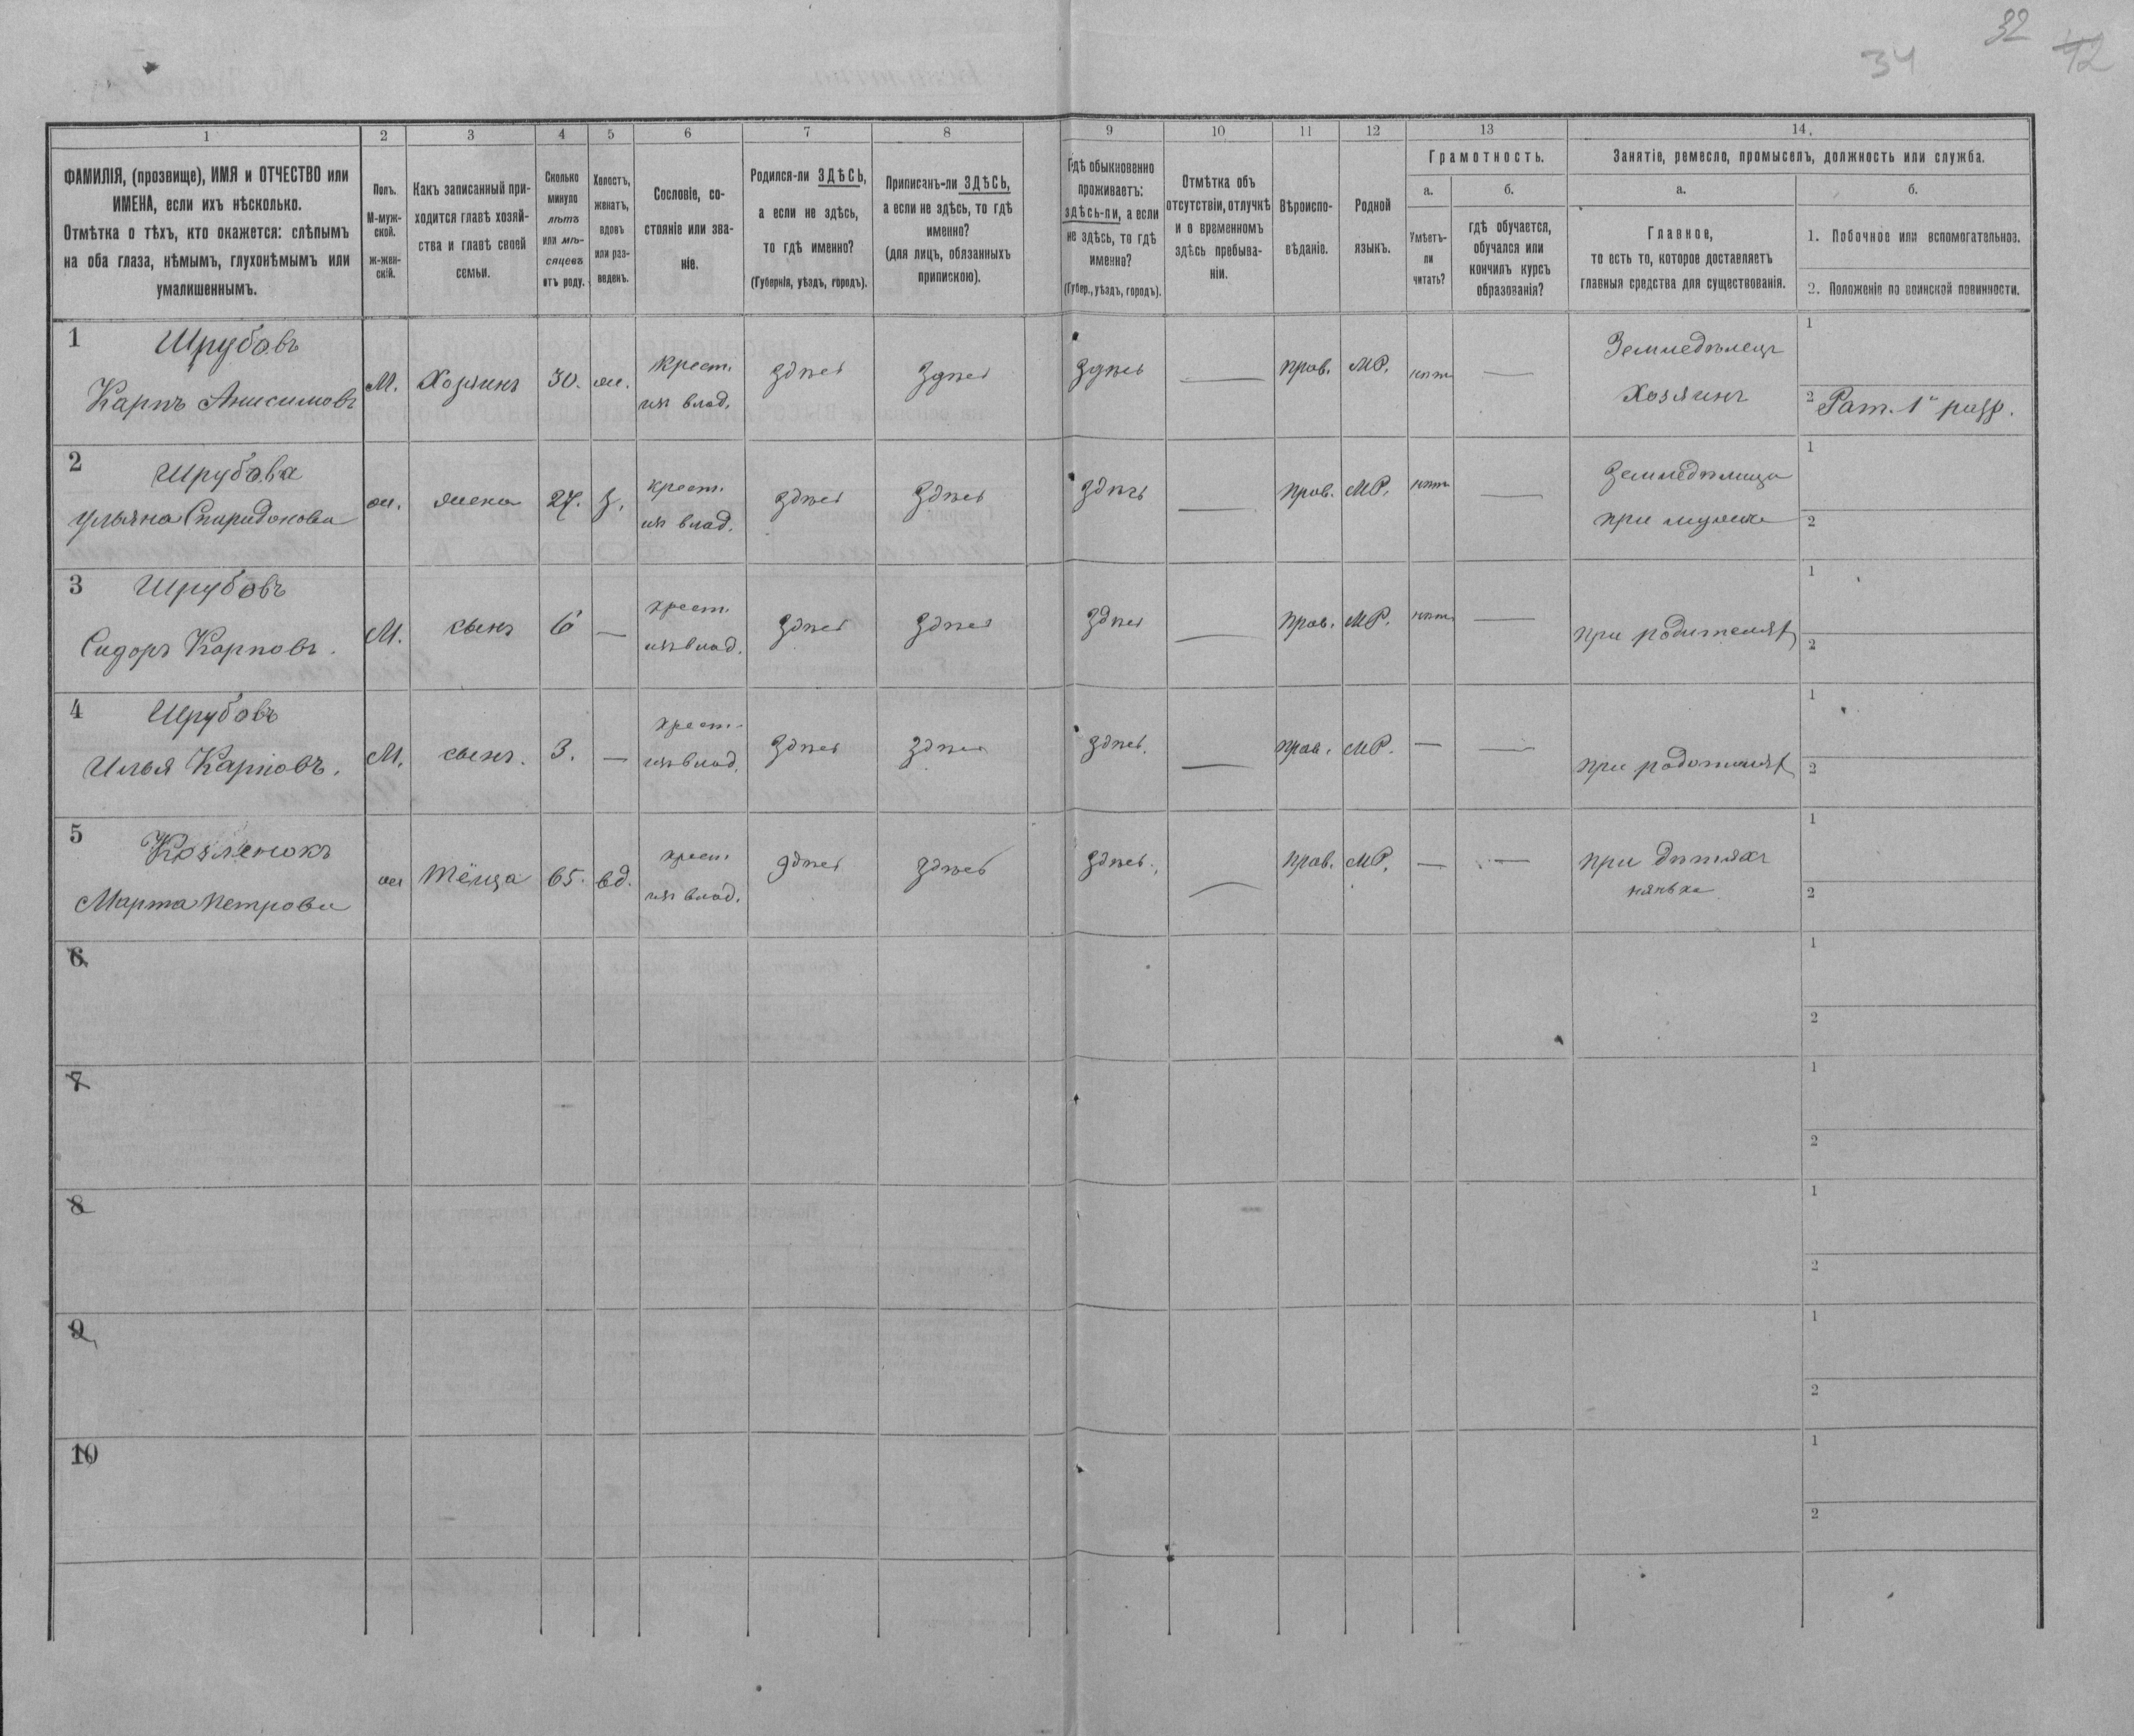 32
34
42
1 2 3 4 5 6 7 8 9 10 11 12 13 14.
ФАМИЛІЯ, (прозвище), ИМЯ и ОТЧЕСТВО или
ИМЕНА, если ихъ нѣсколько.
Отмѣтка о тѣхъ, кто окажется: слѣпымъ
на оба глаза, нѣмымъ, глухонѣмымъ или
умалишеннымъ.
Полъ.
М-муж-
ской.
ж-жен-
скій.
Какъ записанный при-
ходится главѣ хозяй-
ства и главѣ своей
семьи.
Сколько
минуло
лѣтъ
или мѣ-
сяцевъ
отъ роду.
Холостъ,
женатъ,
вдовъ
или раз-
веденъ.
Сословіе, со-
стояніе или зва-
ніе.
Родился-ли ЗДѢСЬ,
а если не здѣсь,
то гдѣ именно?
(Губернія, уѣздъ, городъ).
Приписанъ-ли ЗДѢСЬ,
а если не здѣсь, то гдѣ
именно?
(для лицъ, обязанныхъ
припискою).
Гдѣ обыкновенно
проживаетъ:
здѣсь-ли, а если
не здѣсь, то гдѣ
именно?
(Губер., уѣздъ, городъ).
Отмѣтка объ
отсутствіи, отлучкѣ
и о временномъ
здѣсь пребыва-
ніи.
Вѣроиспо-
вѣданіе.
Родной
языкъ.
Грамотность.
а.
Умѣетъ-
ли
читать?
б.
гдѣ обучается,
обучался или
кончилъ курсъ
образованія?
Занятіе, ремесло, промыселъ, должность или служба.
а.
Главное,
то есть то, которое доставляетъ
главныя средства для существованія.
б.
1. Побочное или вспомогательное.
2. Положеніе по воинской повинности.
1 Шрубовъ
Карпъ Анисимовъ
М. Хозяинъ 30. ж. крест. изъ влад. здѣсь здѣсь здѣсь — прав. МР. нѣтъ — Земледѣлецъ Хозяинъ
1
2 Рат. 1 разр.
2 Шрубова
Ульяна Спиридонова
ж. жена 27. З. крест. изъ влад. здѣсь здѣсь здѣсь — прав. МР. нѣтъ — Земледѣлица при мужѣ
1
2
3 Шрубовъ
Сидоръ Карповъ.
М. сынъ 6 — крест. изъ влад. здѣсь здѣсь здѣсь — прав. МР. нѣтъ — при родителях
1
2
4 Шрубовъ
Илья Карповъ.
М. сынъ. 3. — крест. изъ влад. здѣсь здѣсь здѣсь. — прав. МР. — — при родителях
1
2
5 Козленокъ
Марта Петрова
ж Тёща 65. вд. крест. изъ влад. здѣсь здѣсь здѣсь. — прав. МР. — — при дѣтяхъ нянька
1
2
6
1
2
7
1
2
8
1
2
9
1
2
10
1
2